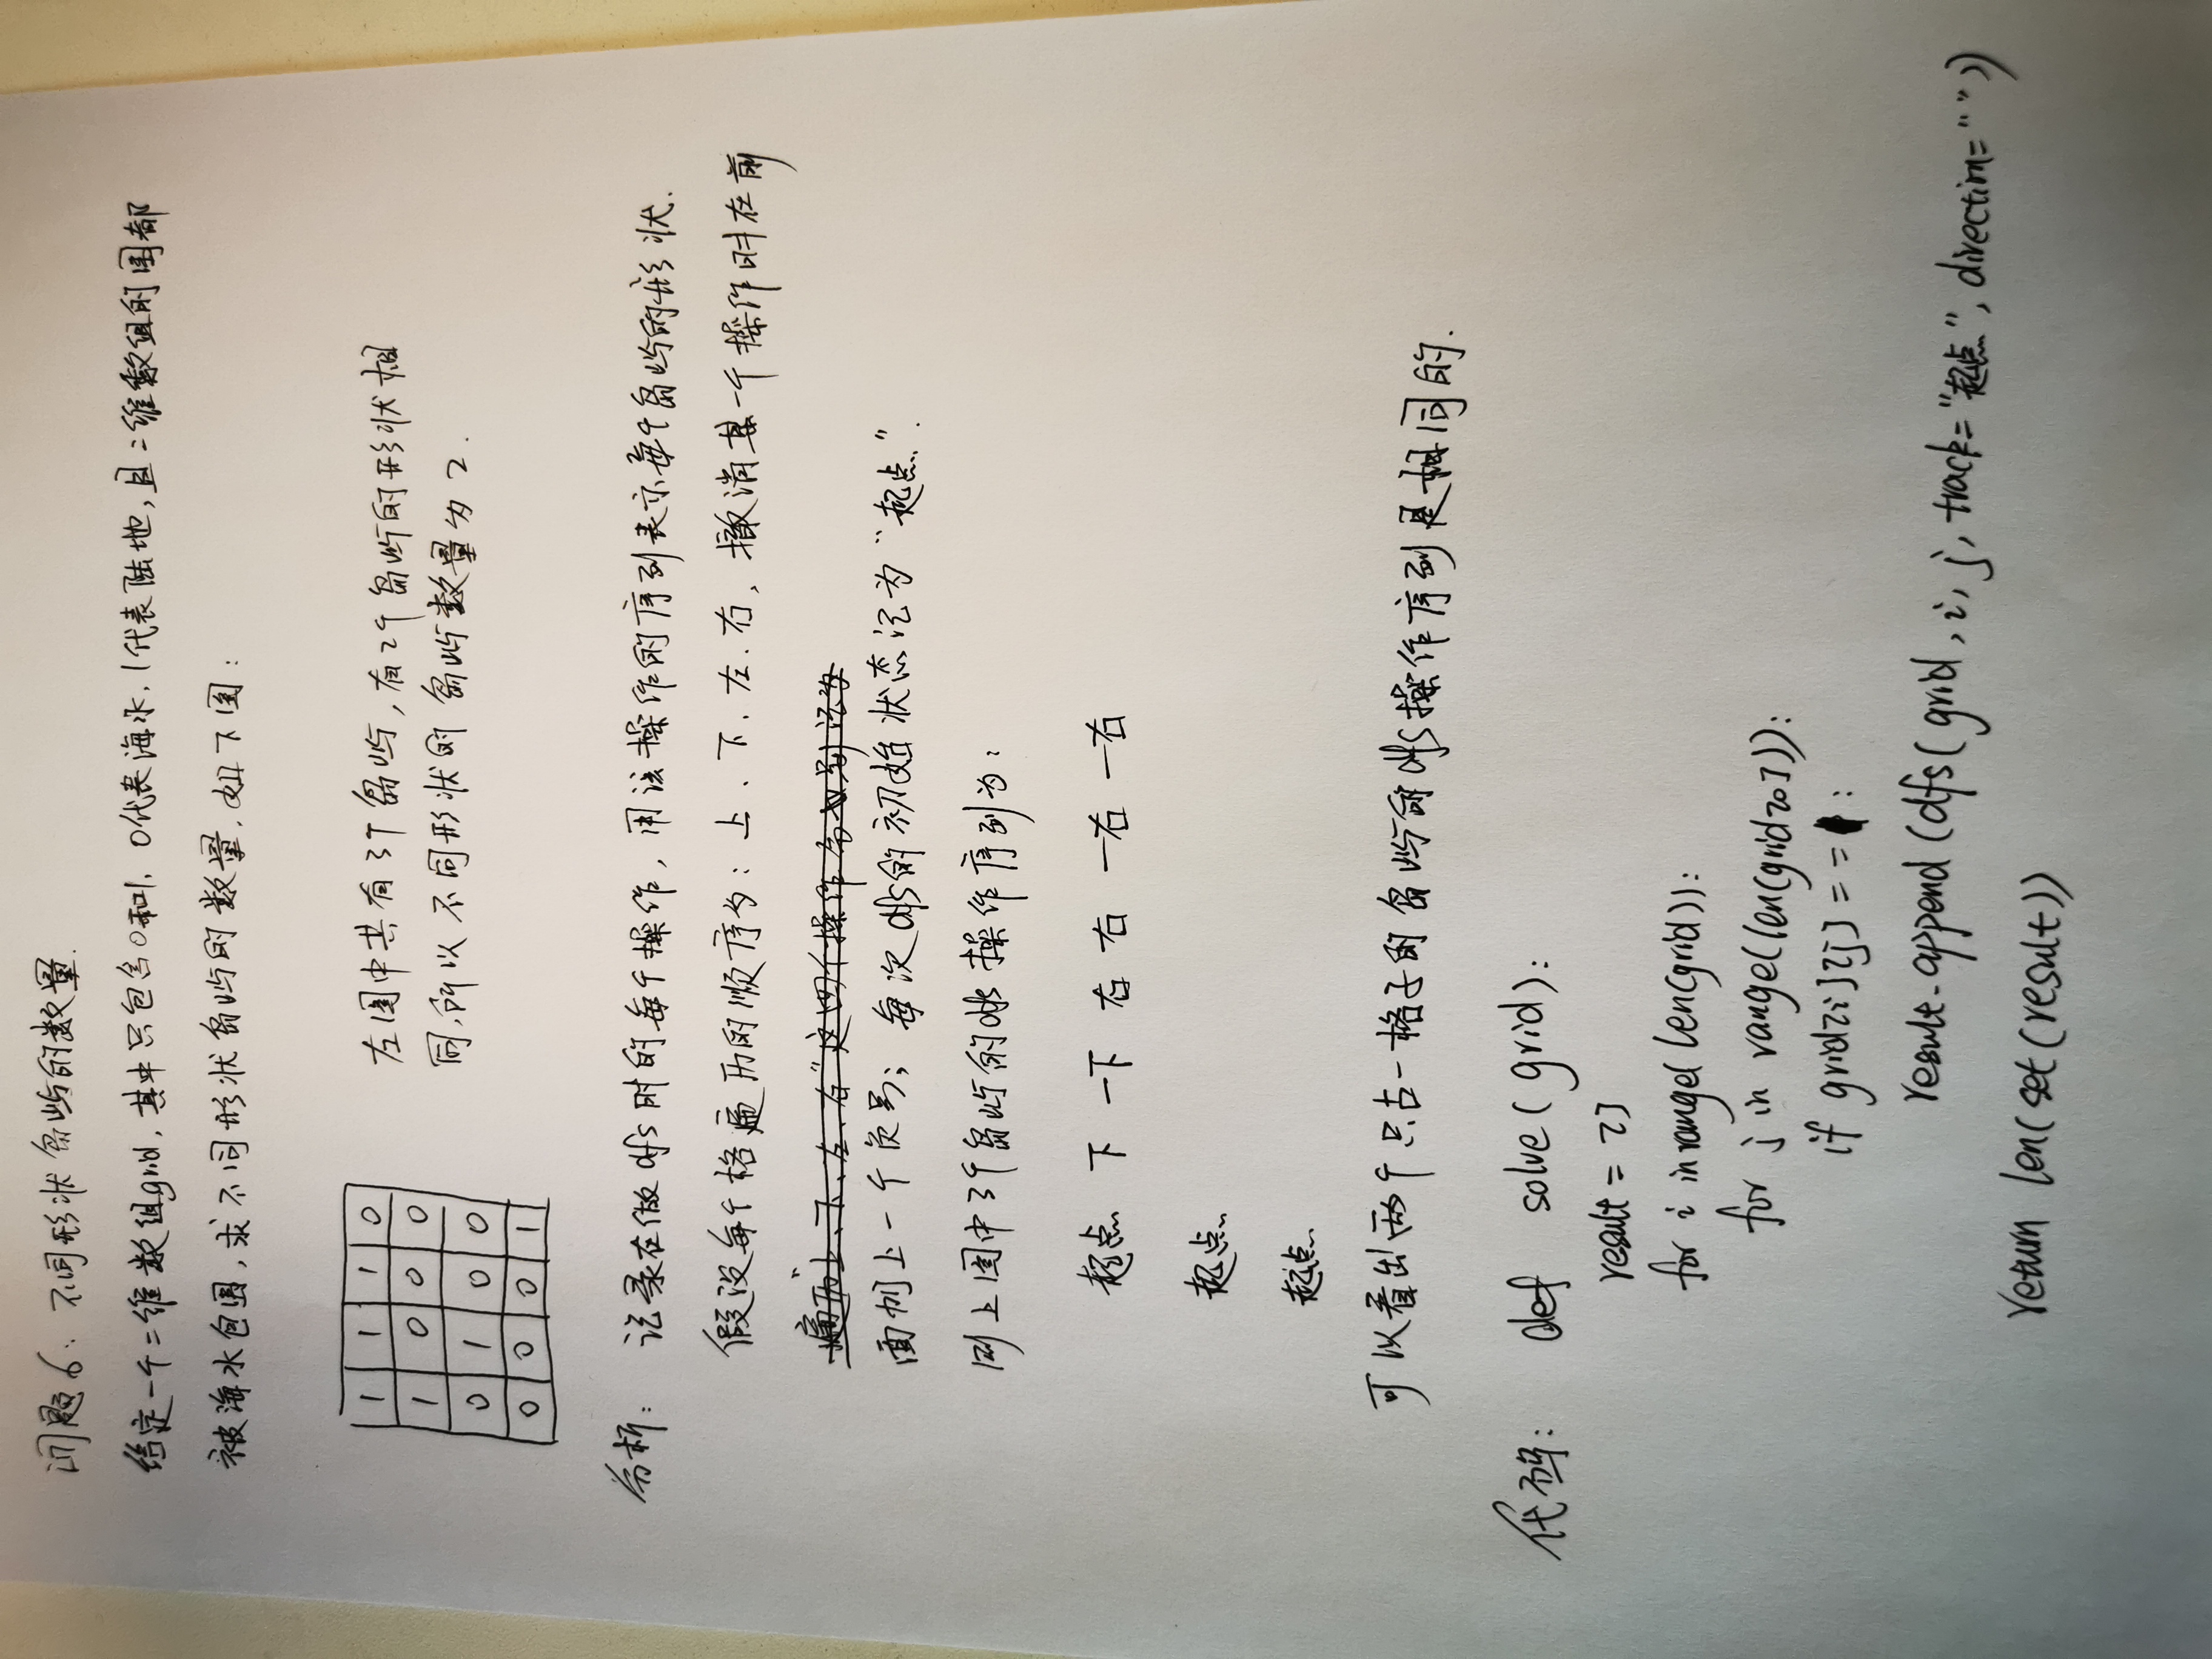 问题6：不同形状岛屿的数量.
给定一个二维数组grid，其中只包含0和1，0代表海水，1代表陆地，且二维数组的周都
被海水包围，求不同形状岛屿的数量，如下图：
1 1 1 0
1 0 0 0
0 1 0 0
0 0 0 1
左图中共有3个岛屿，有2个岛屿的形状相
同，所以不同形状的岛屿数量为2.
分析：记录在做dfs时的每个操作，用该操作的序列表示每个岛屿的形状.
假设每个格遍历的顺序为：上、下、左、右，撤消某一个操作时在前
遍历"上、下、左、右"这四个操作分别记为
面加上一个负号；每次dfs的初始状态记为"起点".
则上图中3个岛屿的dfs操作序列为：
起点 下 -下 右 右 -右 -右
起点
起点
可以看出两个只占一格子的岛屿的dfs操作序列是相同的.
代码：def solve(grid):
result = []
for i in range(len(grid)):
for j in range(len(grid[0])):
if grid[i][j] == 1:
result.append(dfs(grid, i, j, track="起点", direction=""))
return len(set(result))